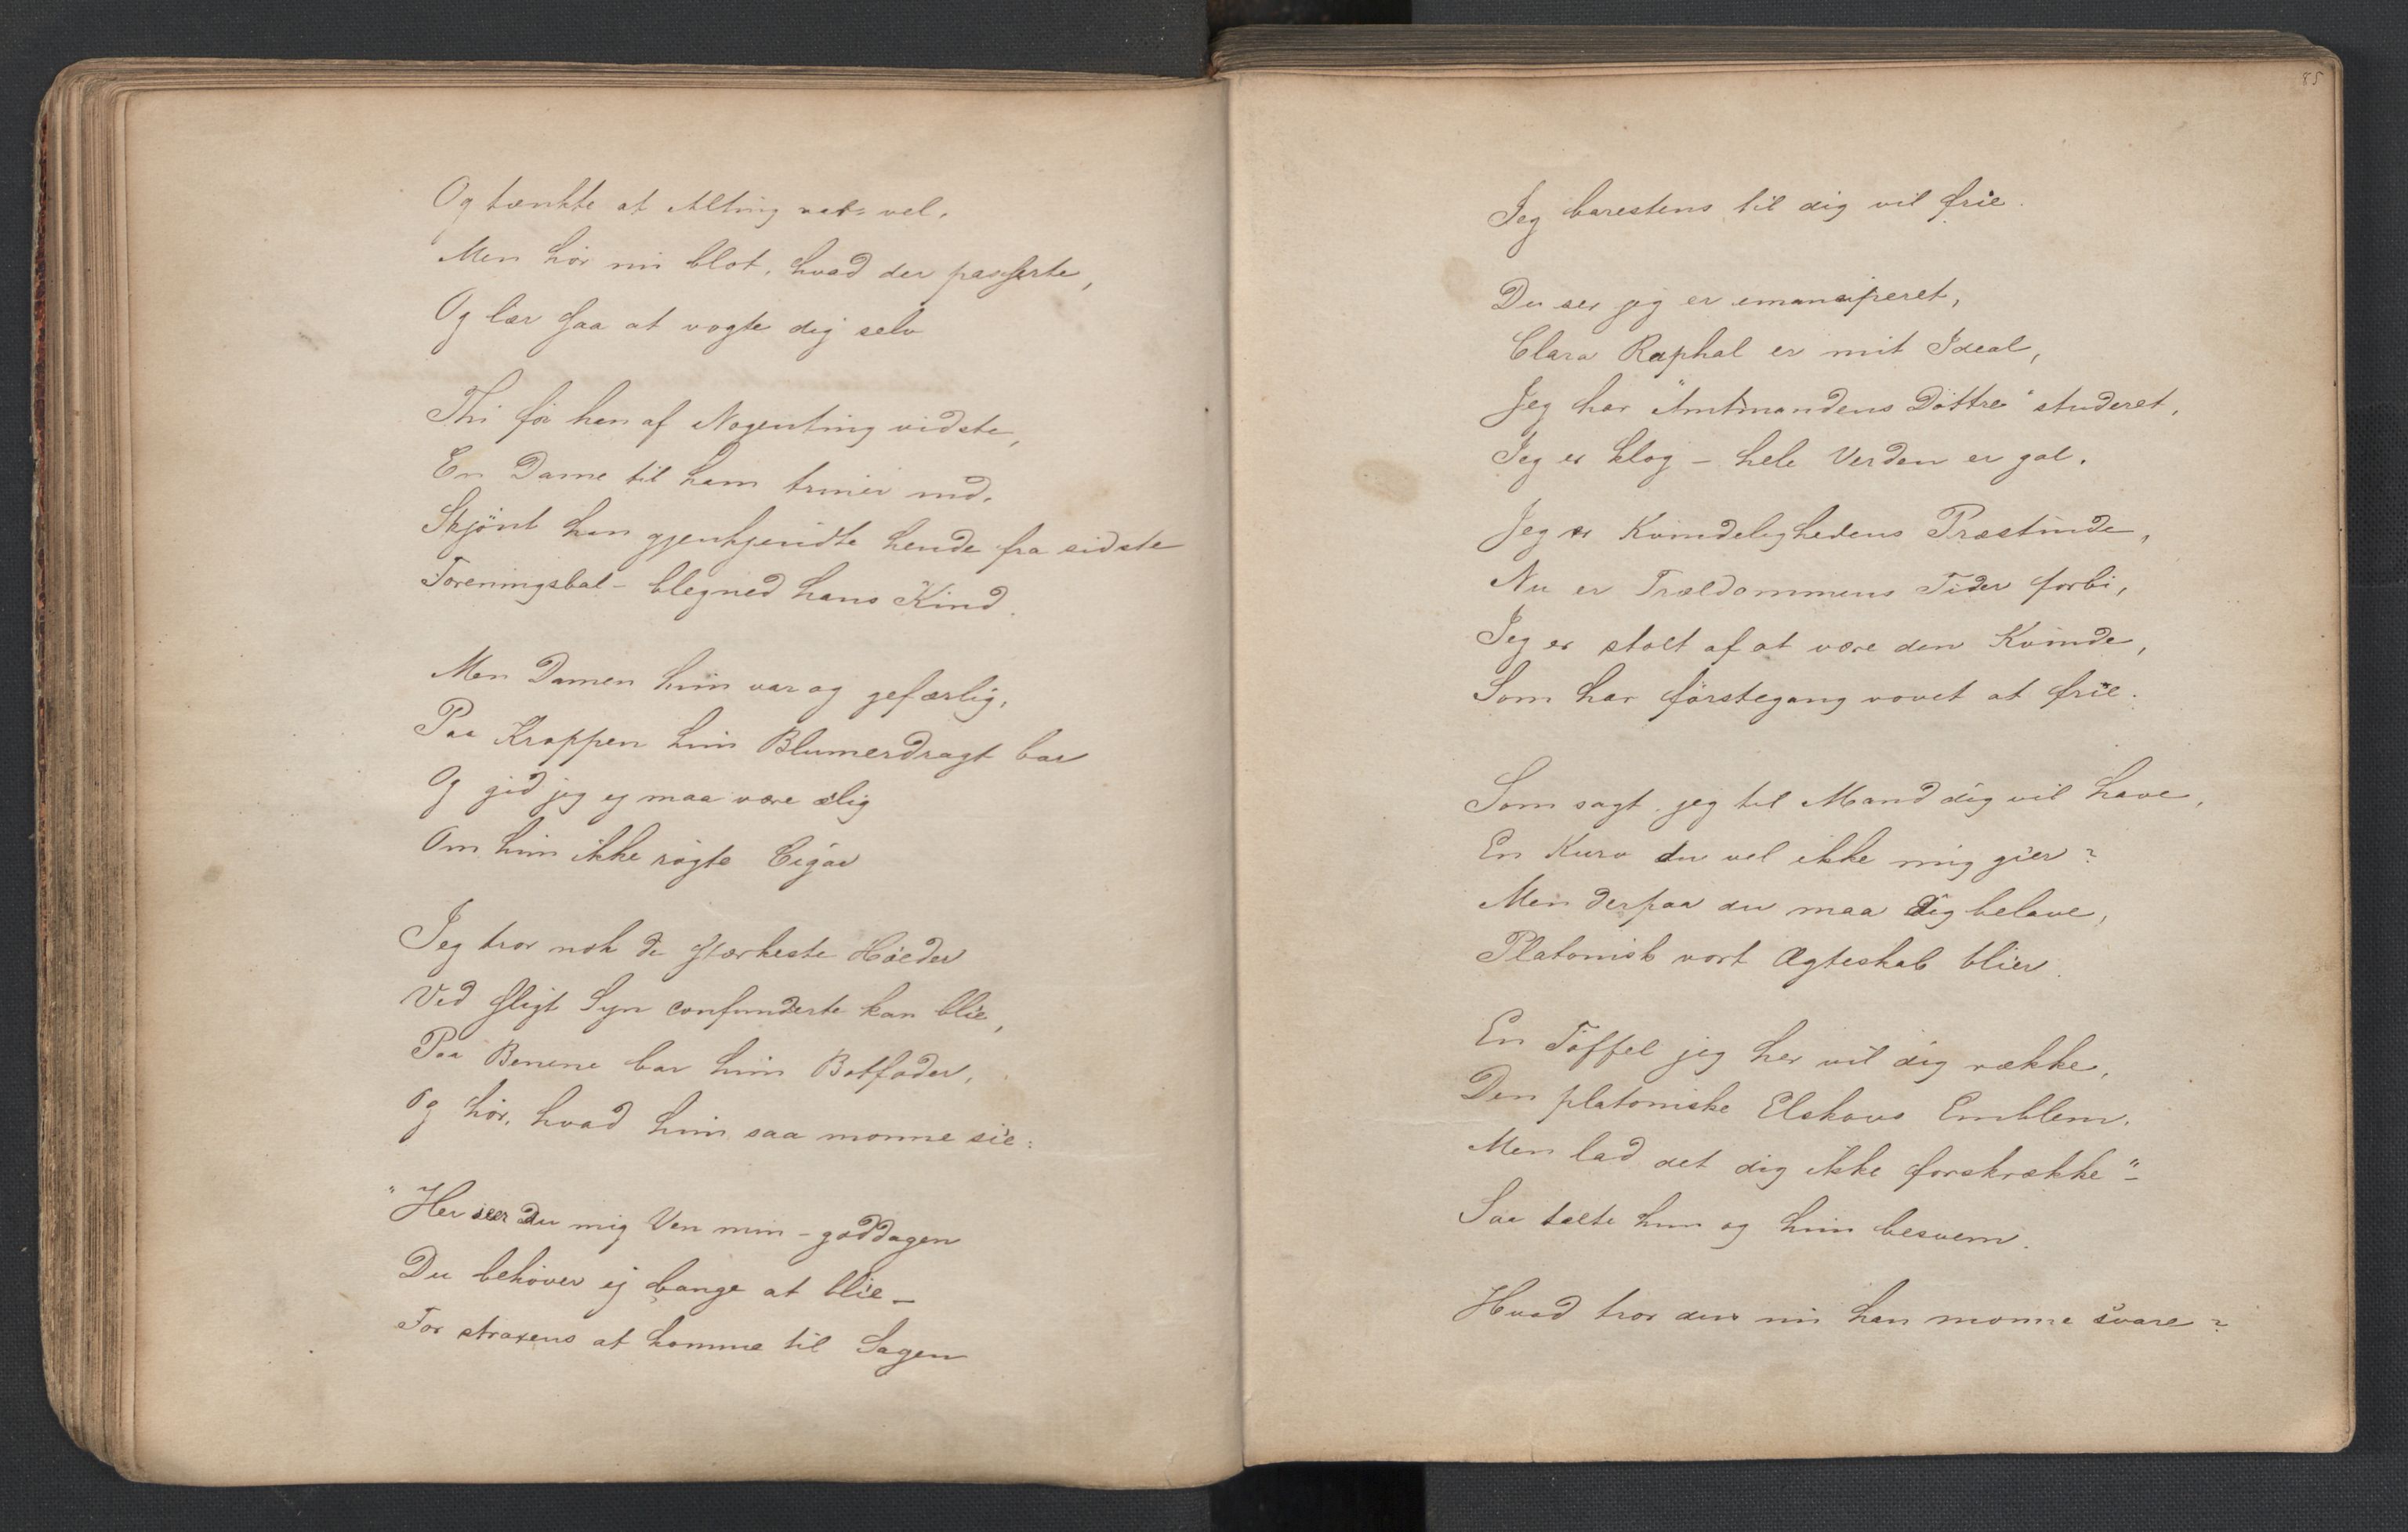 Og tænkte at Alting var vel.
Men hör nu blot, hvad der passerte,
Og lær saa at vogte dig selv
Thi för han af Nogenting vidste,
En Dame til ham triner ind.
Skjönt han gjenkjendte hende fra sidste
Foreningsbal - blegned hans Kind.
Men Damen hun var og gefærlig,
Paa Kroppen hun Blumerdragt bar
Og gid jeg ej maa være ælig
Om hun ikke rögte Cigar
Jeg tror nok de stærkeste Hoeder
Ved sligt Syn confunderte kan blie,
Paa Benene bar hun Botforder,
Og hör, hvad hun saa monne sie:
"Her seer Du mig Ven min - goddagen
Du behöver ej bange at blie _
For straxens at komme til Sagen
85
Jeg barestens til dig vil frie.
Du ser jeg er emansiperet,
Clara Raphal er mit Ideal,
Jeg har "Amtmandens Döttre" studeret,
Jeg er klog - hele Verden er gal.
Jeg er Kvindelighedens Præstinde,
Nu er Trældommens Tider forbi,
Jeg er stolt af at være den Kvinde,
Som har förstegang vovet at frie.
Som sagt, jeg til Mand dig vil have,
En Kurv du vel ikke mig gier?
Men derpaa du maa Dig belave,
Platonisk vort Ægteskab blier.
En Töffel jeg her vil dig række,
Den platoniske Elskovs Emblem.
Men lad det dig ikke forskrække" _
Saa talte hun og hun besvem.
Hvad tror du nu han monne svare?